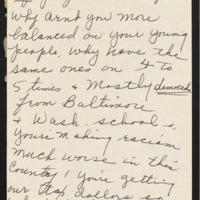 why arn't you more
balanced on your young
people, why have the
same ones on 4 to
5 times & Mostly
from Baltimore
& Wash. schools,
You're making racism
much worse in this
Country! You're getting
our tax dollars so